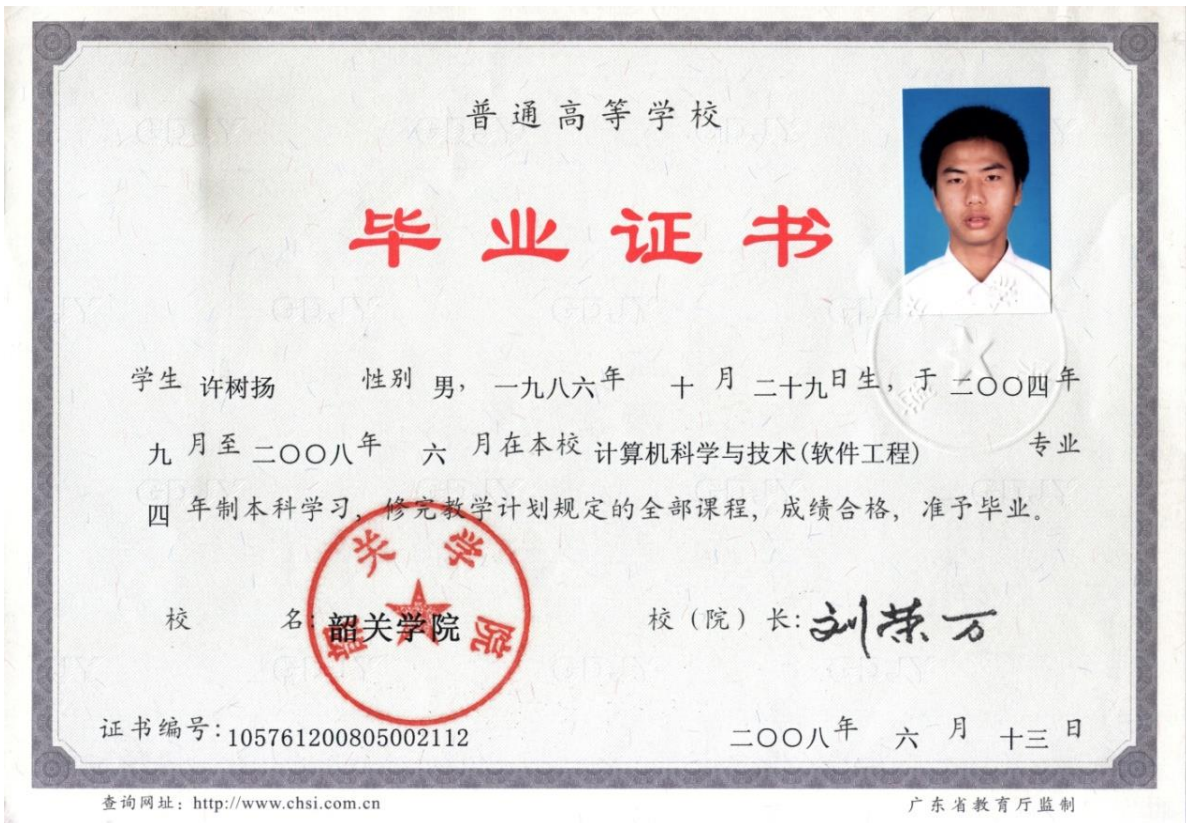 普通高等学校
毕业证书
学生 许树扬 性别 男, 一九八六年 十 月 二十九日生, 于 二〇〇四年
九 月至 二〇〇八年 六 月在本校 计算机科学与技术(软件工程) 专业
四 年制本科学习, 修完教学计划规定的全部课程, 成绩合格, 准予毕业。
韶关学院
校 名: 韶关学院 校(院)长: 刘荣万
证书编号: 105761200805002112 二〇〇八年 六 月 十三 日
查询网址: http://www.chsi.com.cn 广东省教育厅监制